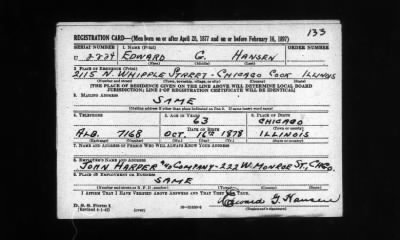 133
REGISTRATION CARD—(Men born on or after April 28, 1877 and on or before February 16, 1897)
SERIAL NUMBER 1. NAME (Print) ORDER NUMBER
U EDWARD G. HANSEN
(First) (Middle) (Last)
2. PLACE OF RESIDENCE (Print)
2115 N. WHIPPLE STREET - CHICAGO COOK ILLINOIS
(Number and street) (Town, township, village, or city) (County) (State)
[THE PLACE OF RESIDENCE GIVEN ON THE LINE ABOVE WILL DETERMINE LOCAL BOARD
JURISDICTION; LINE 2 OF REGISTRATION CERTIFICATE WILL BE IDENTICAL]
3. MAILING ADDRESS
SAME
(Mailing address if other than place indicated on line 2. If same insert word same)
4. TELEPHONE 5. AGE IN YEARS 6. PLACE OF BIRTH
63 CHICAGO
DATE OF BIRTH (Town or county)
ALB. 7168 OCT. 16TH 1878 ILLINOIS
(Exchange) (Number) (Mo.) (Day) (Yr.) (State or country)
7. NAME AND ADDRESS OF PERSON WHO WILL ALWAYS KNOW YOUR ADDRESS
8. EMPLOYER'S NAME AND ADDRESS
JOHN HARPER COMPANY - 222 W. MONROE ST., CHGO.
9. PLACE OF EMPLOYMENT OR BUSINESS
SAME
(Number and street or R. F. D. number) (Town) (County) (State)
I AFFIRM THAT I HAVE VERIFIED ABOVE ANSWERS AND THAT THEY ARE TRUE.
D. S. S. Form 1
(Revised 4-1-42)
Edward G. Hansen